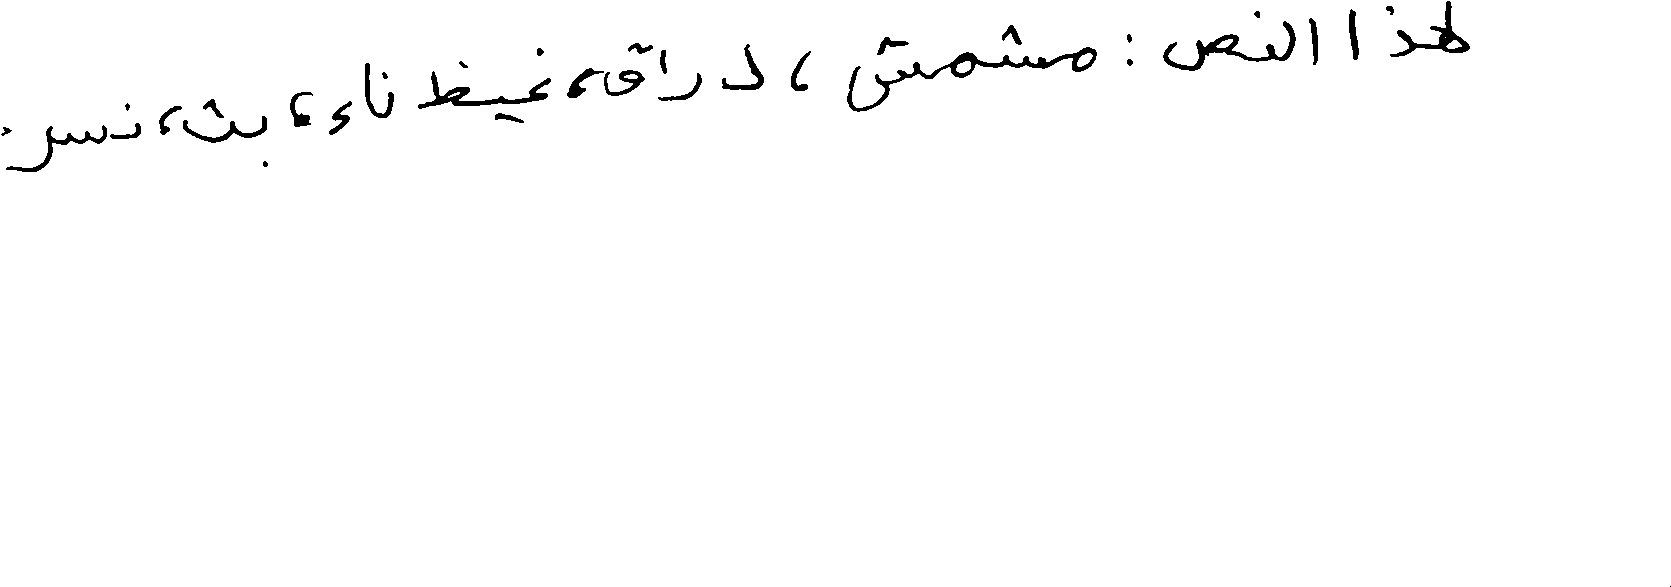 هذا النص: مشمش، دراق، غيظ ناء، بث، نسر.